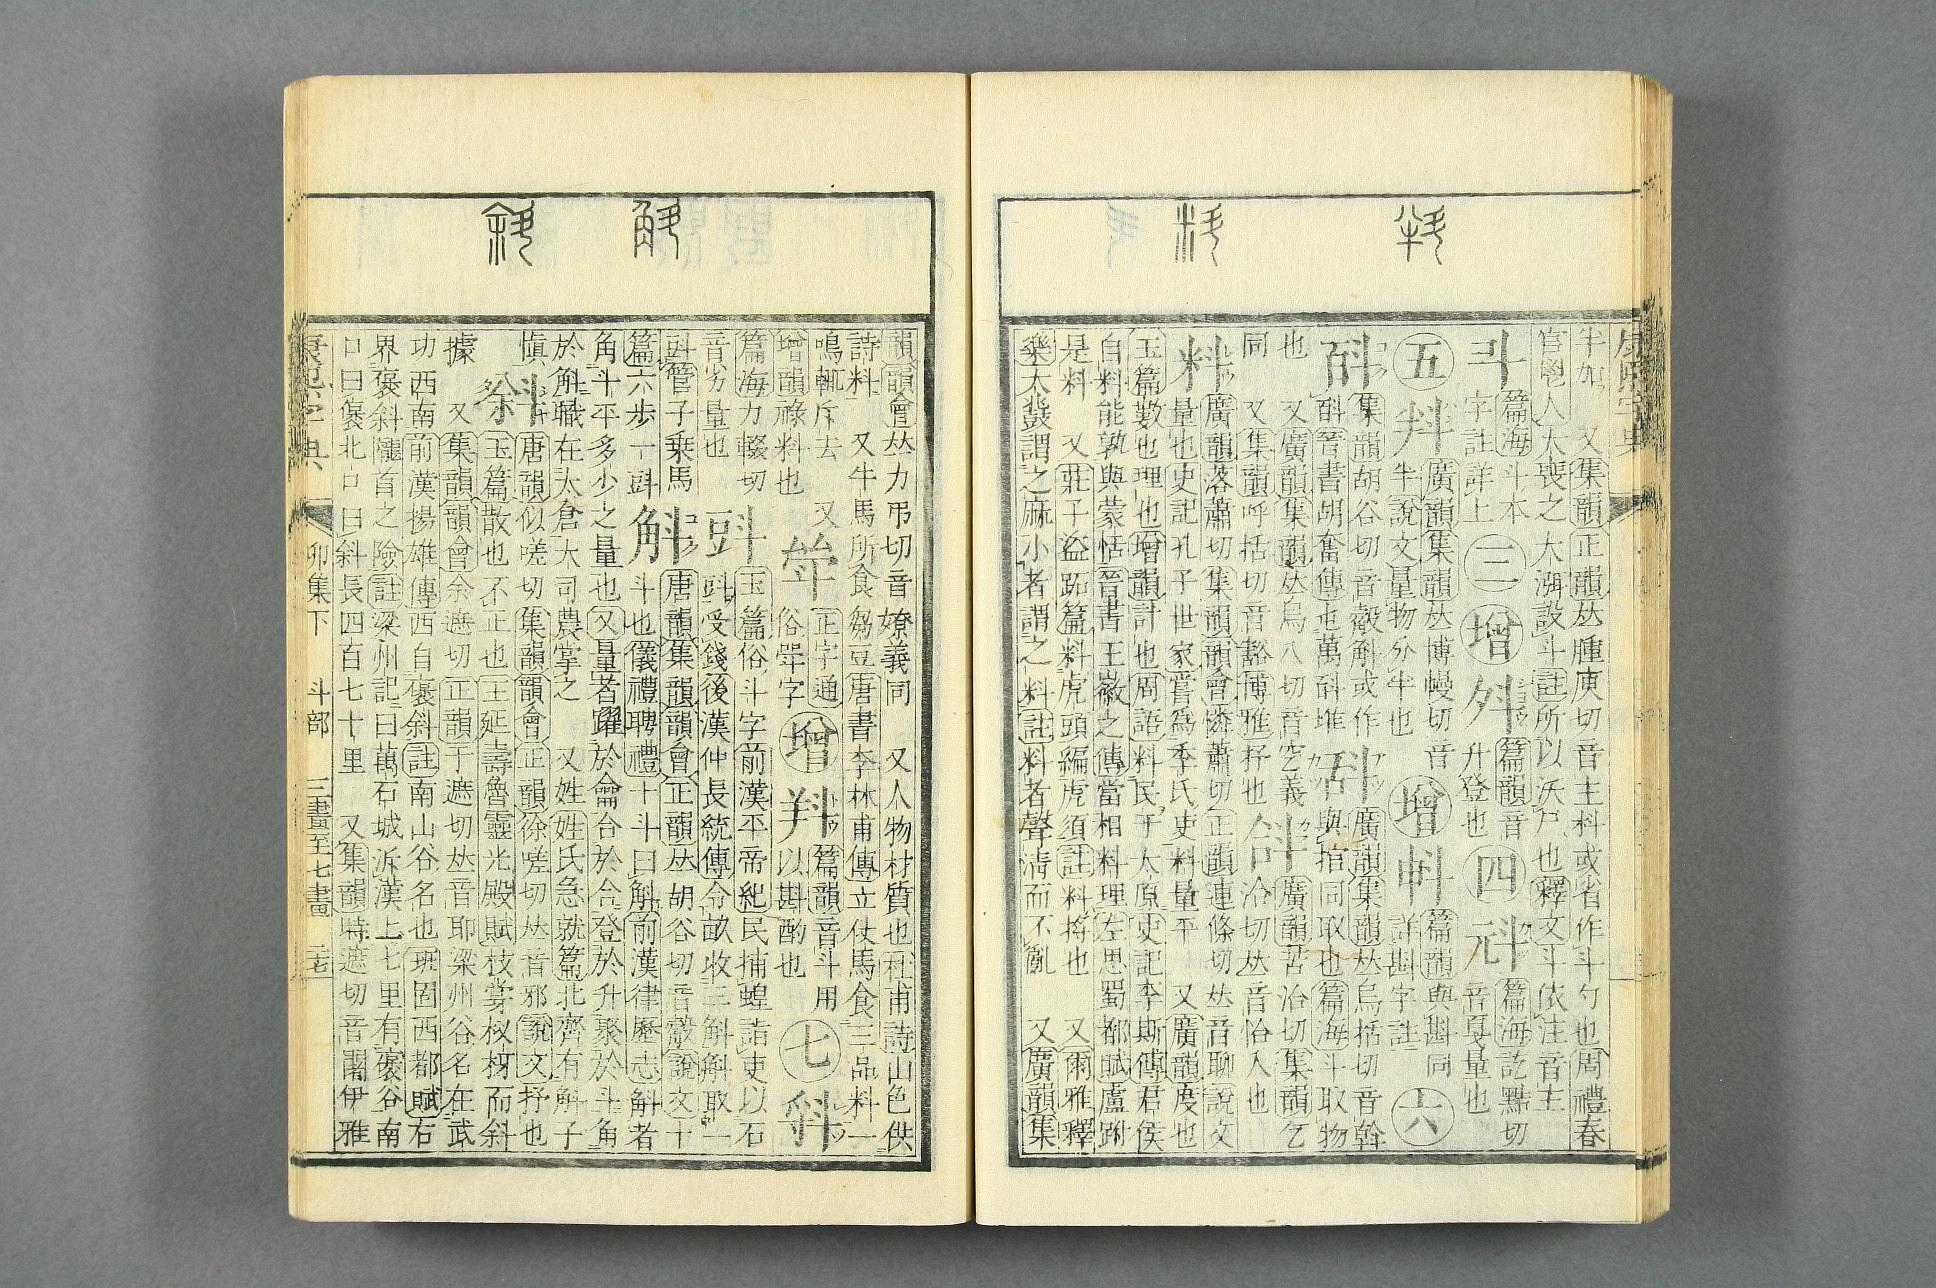 康熙字典
半加 又集韻正韻𠀤腫庾切音主科或省作斗勺也周禮春
官鬯人大喪之大渳設斗註所以沃尸也釋文斗依注音主
篇海斗本字註詳上 三 增 篇韻音升登也 四 篇海訖黠切音戛量也
五 廣韻集韻𠀤博幔切音半說文量物分半也 增 篇韻與斟同詳斟字註 六
斛 集韻胡谷切音縠斛或作斛晉書胡奮傳也萬斛堆 廣韻集韻𠀤烏括切音斡與捾同取也篇海斗取物
也 又廣韻集韻𠀤烏八切音空義同 又集韻呼括切音豁博雅杼也 廣韻苦洽切集韻乞洽切𠀤音恰入也
料 廣韻落蕭切集韻韻會憐蕭切正韻連條切𠀤音聊說文
量也史記孔子世家嘗爲季氏吏料量平 又廣韻度也
玉篇數也理也增韻計也周語料民于太原史記李斯傳君侯
自料能孰與蒙恬晉書王徽之傳當相料理左思蜀都賦盧跗
是料 又莊子盜跖篇料虎頭編虎須註料捋也 又爾雅釋
樂大鼗謂之麻小者謂之料註料者聲淸而不亂 又廣韻集
韻韻會𠀤力弔切音嫽義同 又人物材質也杜甫詩山色供
詩料 又牛馬所食芻豆唐書李林甫傳立仗馬食三品料一
鳴輒斥去 又增韻祿料也 正字通俗斝字 增 篇韻音斗用以斟酌也 七
篇海力輟切音劣量也 玉篇俗斗字前漢平帝紀民捕蝗詣吏以石
㪷受錢後漢仲長統傳令畝收三斛斛取一
㪷管子乗馬篇六步一㪷 斛 唐韻集韻韻會正韻𠀤胡谷切音縠說文十
斗也儀禮聘禮十斗曰斛前漢律歷志斛者
角斗平多少之量也又量者躍於龠合於合登於升聚於斗角
於斛職在太倉大司農掌之 又姓姓氏急就篇北齊有斛子
愼 斜 唐韻似嗟切集韻韻會正韻徐嗟切𠀤音邪說文抒也
玉篇散也不正也王延壽魯靈光殿賦枝掌杈枒而斜
據 又集韻韻會余遮切正韻于遮切𠀤音耶梁州谷名在武
功西南前漢揚雄傳西自褒斜註南山谷名也班固西都賦右
界褒斜隴首之險註梁州記曰萬石城泝漢上七里有褒谷南
口曰褒北口曰斜長四百七十里 又集韻時遮切音闍伊雅
康熙字典 卯集下 斗部 三畫至七畫